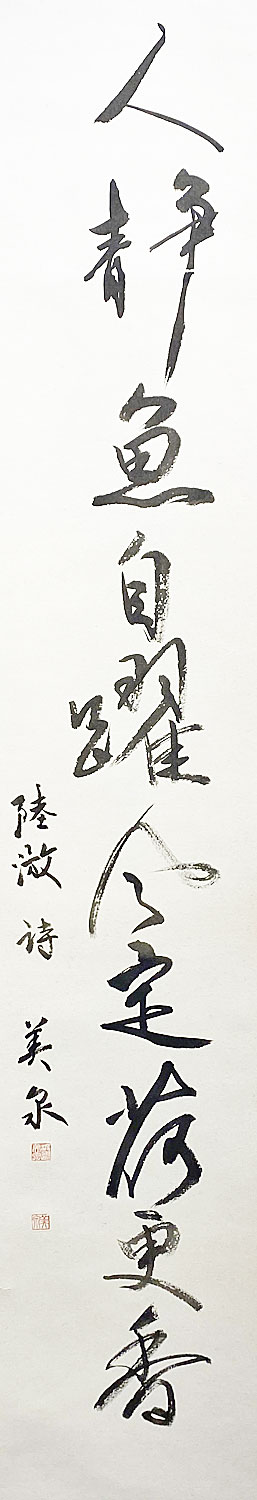 人静魚自躍風定荷更香
陸游詩 美泉